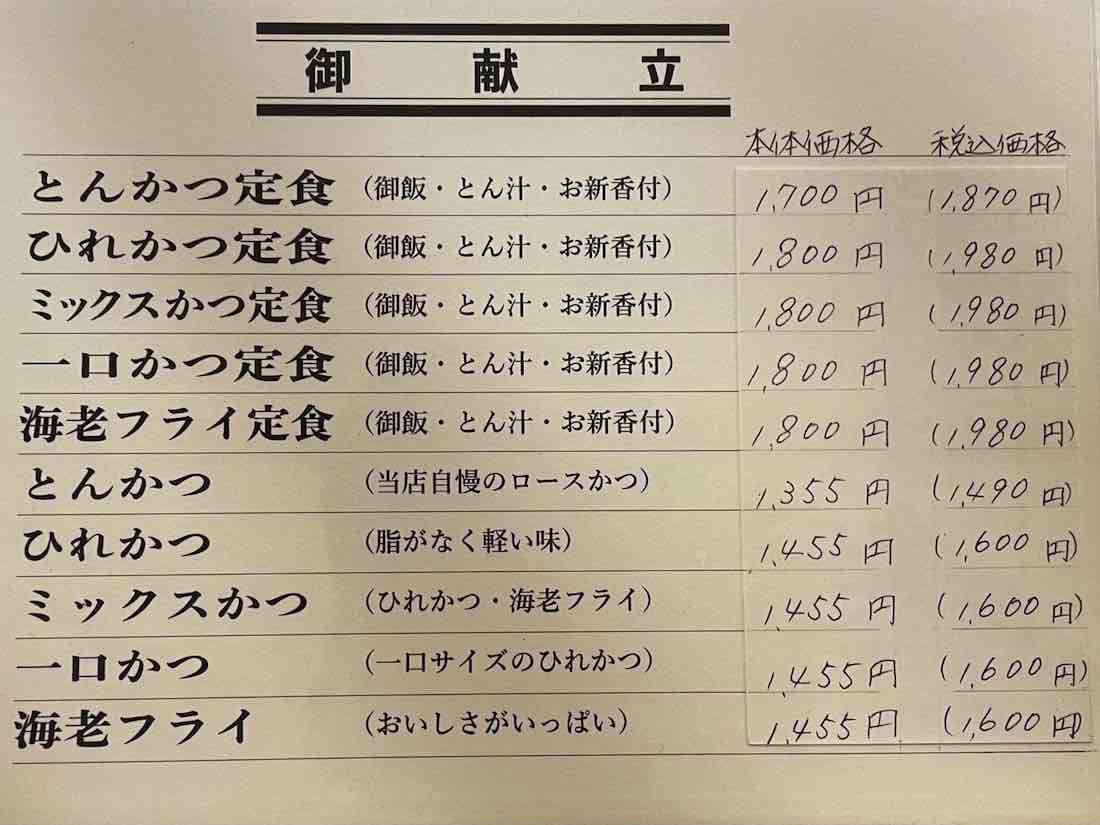 御献立
本体価格 税込価格
とんかつ定食 (御飯・とん汁・お新香付) 1,700円 (1,870円)
ひれかつ定食 (御飯・とん汁・お新香付) 1,800円 (1,980円)
ミックスかつ定食 (御飯・とん汁・お新香付) 1,800円 (1,980円)
一口かつ定食 (御飯・とん汁・お新香付) 1,800円 (1,980円)
海老フライ定食 (御飯・とん汁・お新香付) 1,800円 (1,980円)
とんかつ (当店自慢のロースかつ) 1,355円 (1,490円)
ひれかつ (脂がなく軽い味) 1,455円 (1,600円)
ミックスかつ (ひれかつ・海老フライ) 1,455円 (1,600円)
一口かつ (一口サイズのひれかつ) 1,455円 (1,600円)
海老フライ (おいしさがいっぱい) 1,455円 (1,600円)